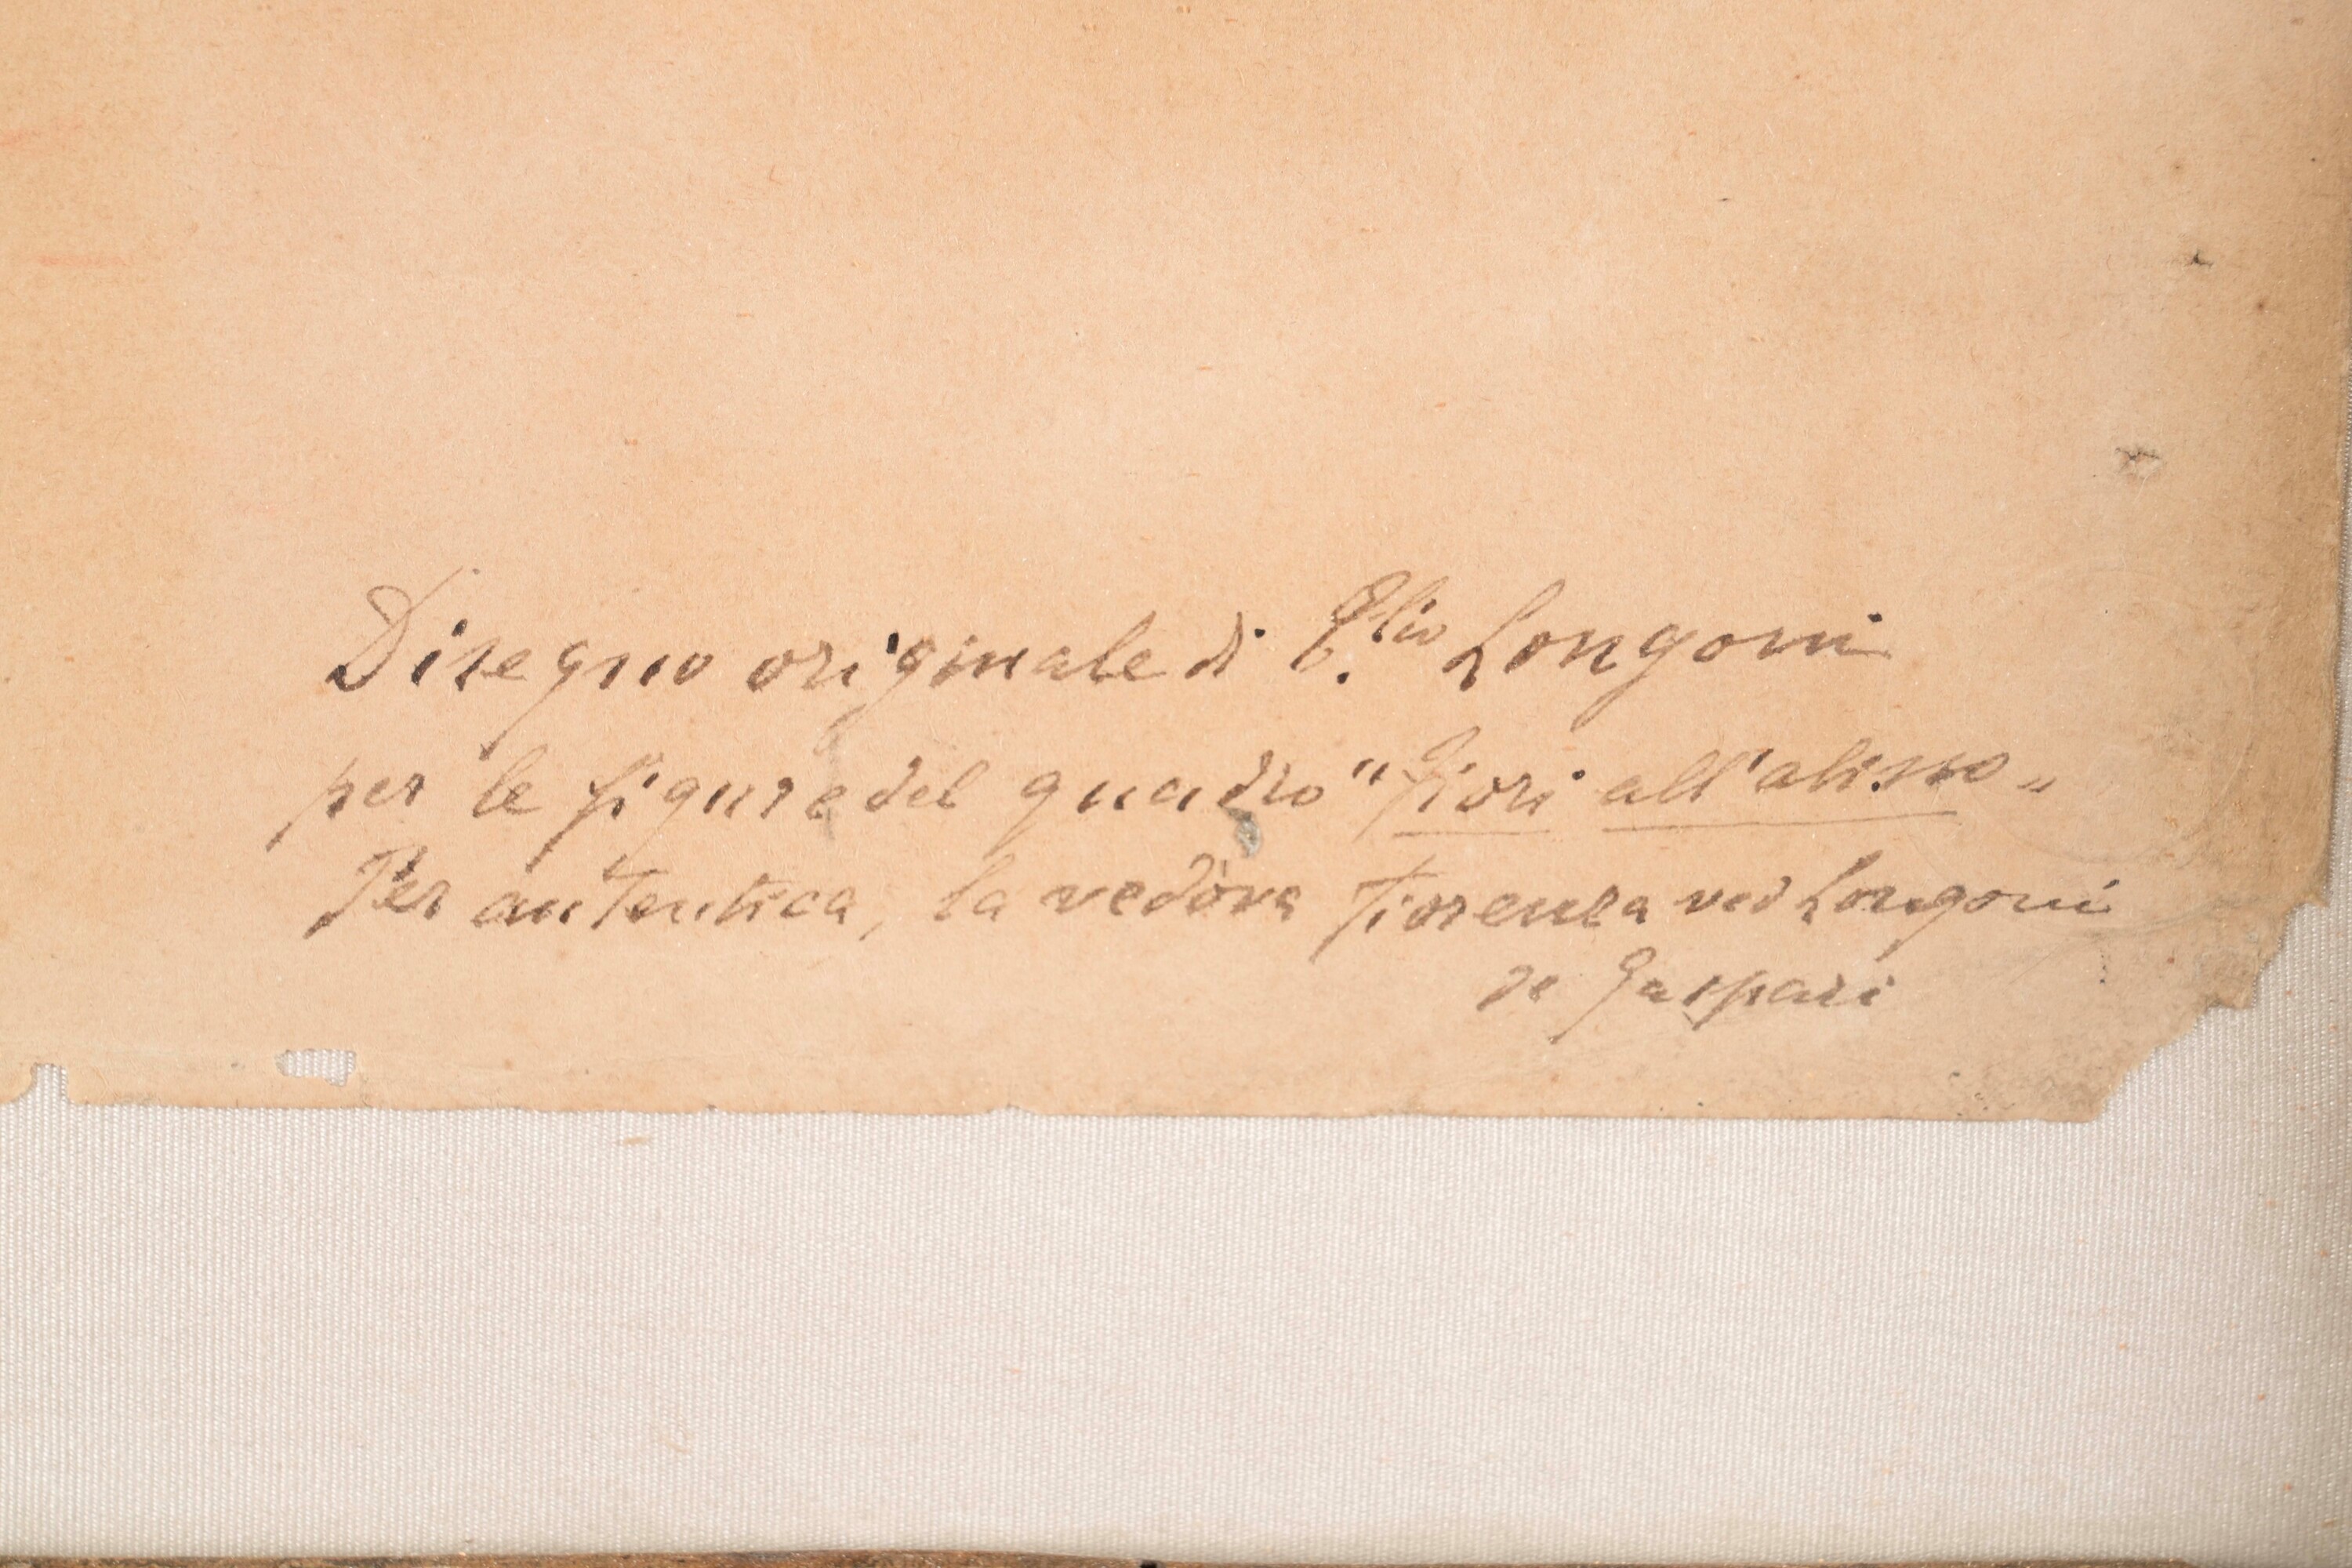 Disegno originale di E.lio Longoni
per le figure del quadro "fiori all'abisso"
Per autentica, la vedova Fiorenza ved Longoni
de Gaspari